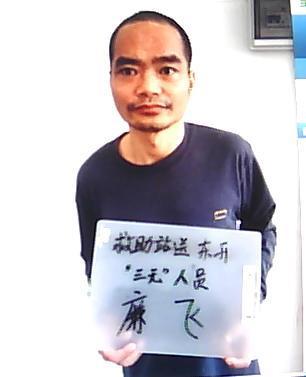 救助站送 东升
"三无"人员
廉 飞